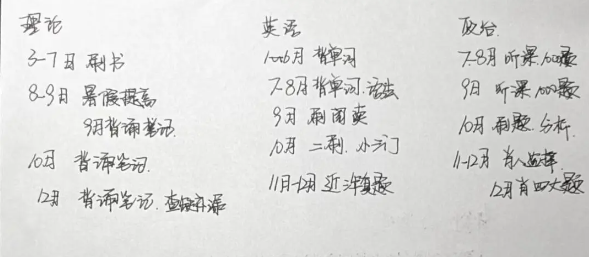 理论
3-7月 刷书
8-9月 暑假提高
9月背诵笔记
10月 背诵笔记
12月 背诵笔记、查缺补漏
英语
6月 背单词
7-8月背单词、语法
9月 刷阅卖
10月 二刷、小三门
11月-12月 近年真题
政治
7-8月 听课、1000题
9月 听课、1000题
10月 刷题、分析
11-12月 肖八选择
12月肖四大题